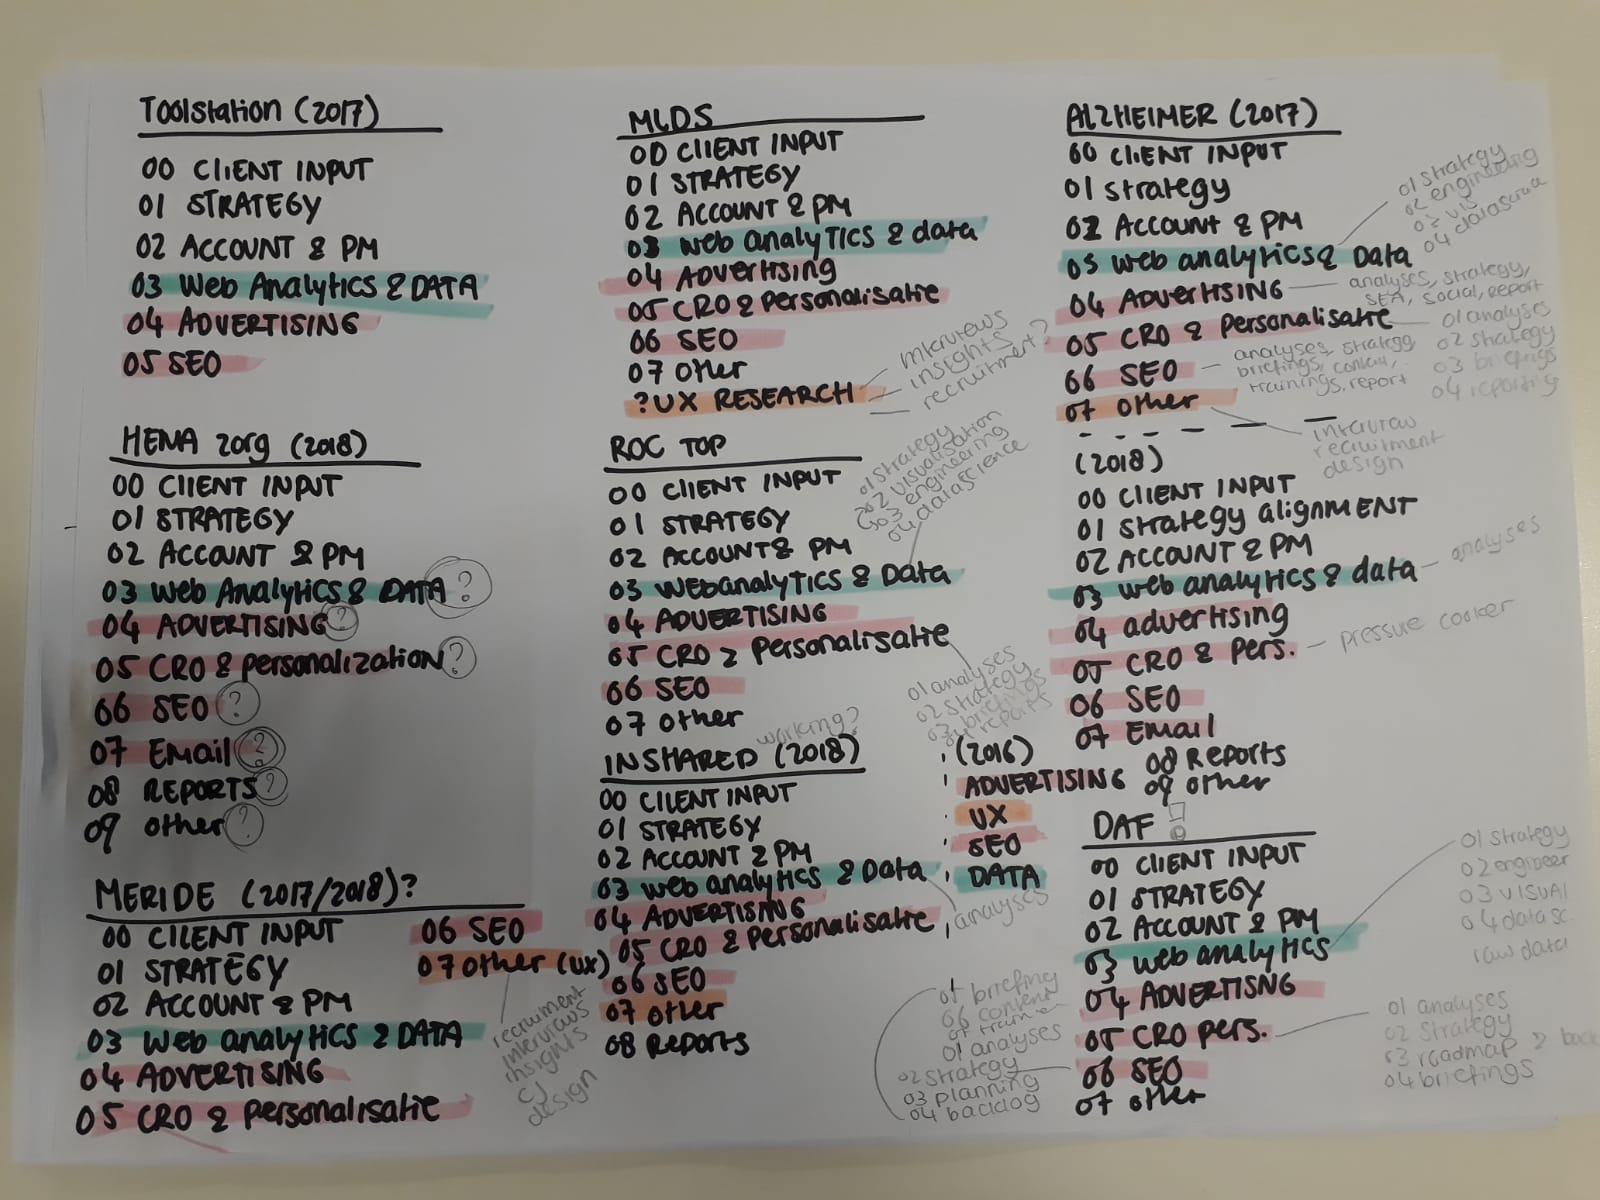 Toolstation (2017)
00 CLIENT INPUT
01 STRATEGY
02 ACCOUNT & PM
03 Web Analytics & DATA
04 ADVERTISING
05 SEO
HEMA zorg (2018)
00 CLIENT INPUT
01 STRATEGY
02 ACCOUNT & PM
03 Web Analytics & DATA ?
04 ADVERTISING ?
05 CRO & personalization ?
06 SEO ?
07 Email ?
08 REPORTS ?
09 other ?
MERIDE (2017/2018)?
00 CLIENT INPUT
01 STRATEGY
02 ACCOUNT & PM
03 Web analytics & DATA
04 ADVERTISING
05 CRO & personalisatie
06 SEO
07 other (UX)
recruiment
interviews
insights
CJ
design
MLDS
00 CLIENT INPUT
01 STRATEGY
02 ACCOUNT & PM
03 web analyTICS & data
04 ADvertising
05 CRO & personalisatie
06 SEO
07 other
? UX RESEARCH
interviews
insights
recruitment?
ROC TOP
00 CLIENT INPUT
01 STRATEGY
02 ACCOUNT & PM
03 WebanalyTICS & Data
04 ADVERTISING
05 CRO & Personalisatie
06 SEO
07 other
01 strategy
02 visualisation
03 engineering
04 datascience
01 analyses
02 strategy
03 briefings
04 reports
working?
INSHARED (2018)
00 CLIENT INPUT
01 STRATEGY
02 ACCOUNT & PM
03 web analytics & Data
04 ADVERTISING
05 CRO & Personalisatie
06 SEO
07 other
08 Reports
analyses
(2016)
ADVERTISING
UX
SEO
DATA
01 briefing
06 content
01 analyses
02 strategy
03 planning
04 backlog
ALZHEIMER (2017)
00 CLIENT INPUT
01 strategy
02 Account & PM
03 web analytics & Data
04 ADVERTISING
05 CRO & Personalisatie
06 SEO
07 other
01 strategy
02 engineering
03 vis
04 datascience
analyses, strategy,
SEA, social, report
01 analyses
02 strategy
03 briefings
04 reporting
analyses, strategy
briefings, content,
trainings, report
interview
recruitment
design
(2018)
00 CLIENT INPUT
01 strategy alignMENT
02 ACCOUNT & PM
03 web analytics & data
04 advertising
05 CRO & Pers.
06 SEO
07 Email
08 Reports
09 other
analyses
pressure cooker
DAF !
00 CLIENT INPUT
01 STRATEGY
02 ACCOUNT & PM
03 web analytics
04 ADVERTISNG
05 CRO pers.
06 SEO
07 other
01 strategy
02 engineer
03 visual
04 data sc.
raw data
01 analyses
02 strategy
03 roadmap & back
04 briefings